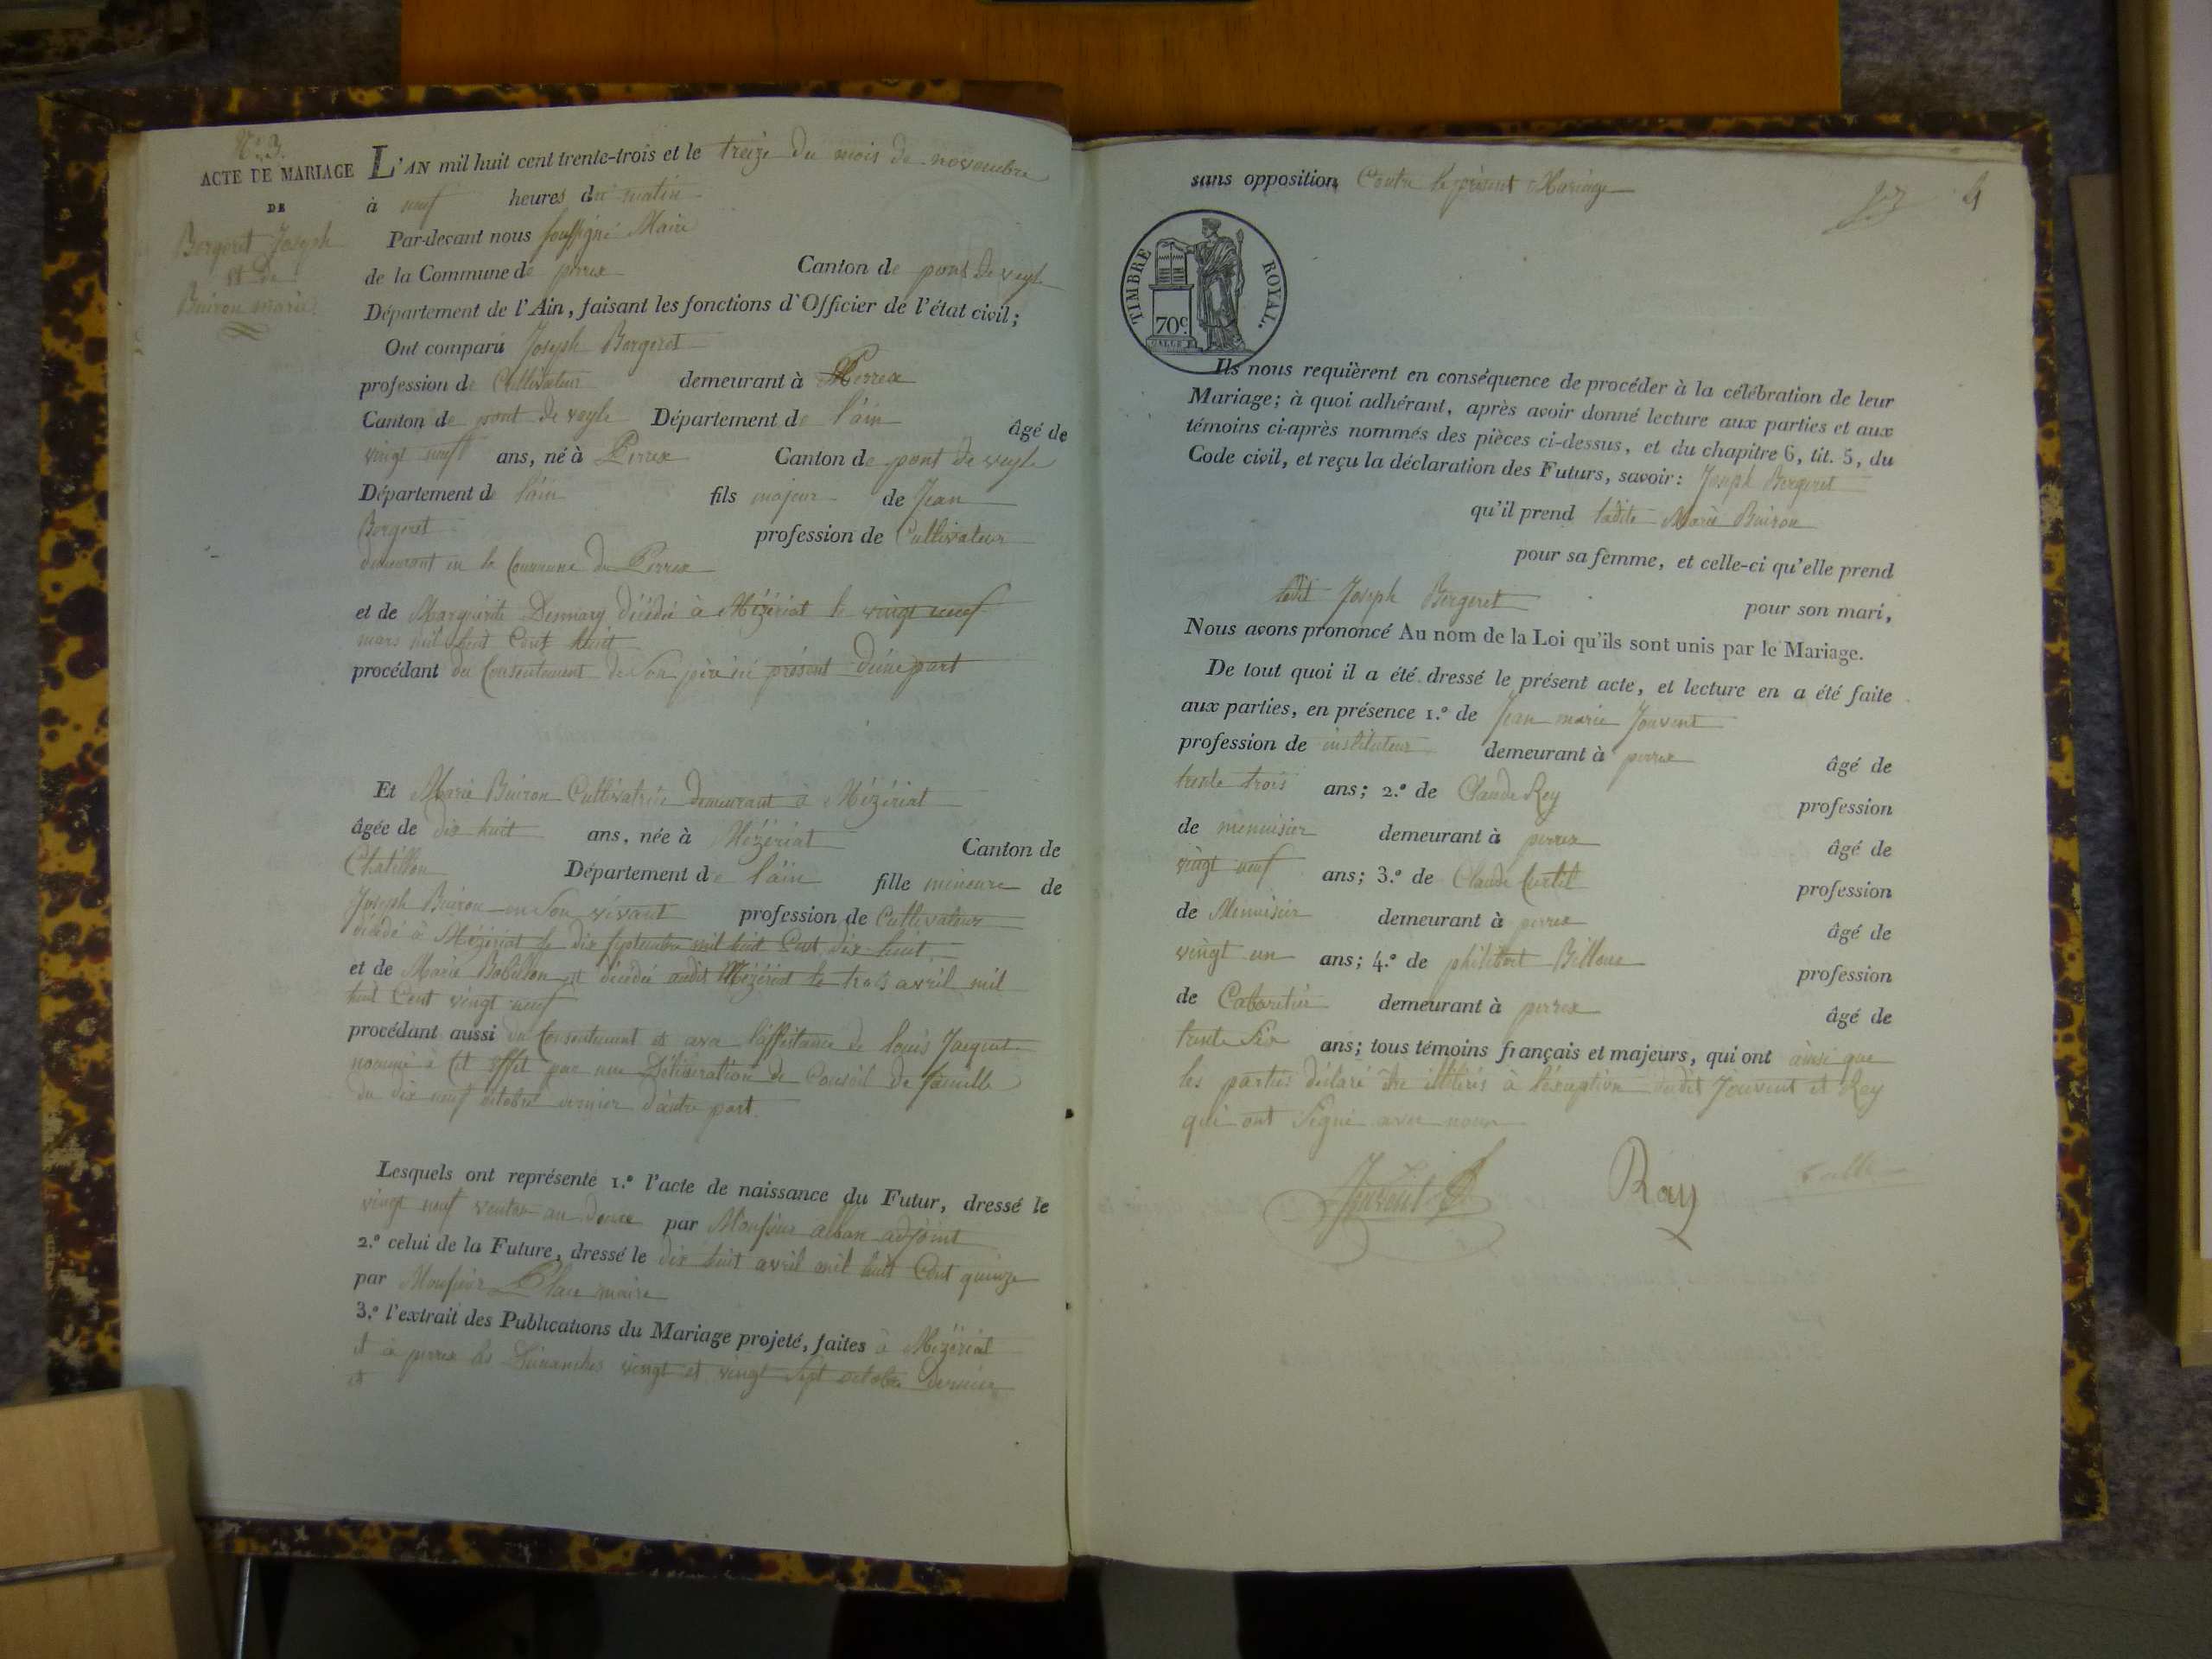 N.º 3.
ACTE DE MARIAGE
DE
Bergeret Joseph
et de
Buiron marie
L'AN mil huit cent trente-trois et le treize du mois de novembre
à neuf heures du matin
Par-devant nous soussigné Maire
de la Commune de perrex Canton de pont de veyle
Département de l'Ain, faisant les fonctions d'Officier de l'état civil;
Ont comparu Joseph Bergeret
profession de Cultivateur demeurant à Perrex
Canton de pont de veyle Département de l'ain âgé de
vingt neuf ans, né à Perrex Canton de pont de veyle
Département de l'ain fils majeur de Jean
Bergeret profession de Cultivateur
demeurant en la Commune de Perrex
et de Marguerite décédée à Mézériat le vingt neuf
mars mil huit Cent huit
procédant du Consentement de Son père ici présent d'une part
Et Marie Buiron Cultivatrice demeurant à Mézériat
âgée de dix huit ans, née à Mézériat Canton de
Chatillon Département de l'ain fille mineure de
Joseph Buiron en Son vivant profession de Cultivateur
décédé à Mézériat le dix Septembre mil huit Cent dix huit
et de Marie Babillon et décédée audit Mézériat le trois avril mil
huit Cent vingt neuf
procédant aussi du Consentement et avec l'assistance de louis Jacquet
nommé à Cet effet par une Délibération de Conseil de famille
du dix neuf octobre dernier d'autre part.
Lesquels ont représenté 1.º l'acte de naissance du Futur, dressé le
vingt neuf ventose an douze par Monsieur alban adjoint
2.º celui de la Future, dressé le dix huit avril mil huit Cent quinze
par Monsieur Place maire
3.º l'extrait des Publications du Mariage projeté, faites à Mézériat
et à perrex les Dimanches vingt et vingt Sept octobre dernier
et
4
sans opposition Contre le présent Mariage
TIMBRE ROYAL.
70 c.
Ils nous requièrent en conséquence de procéder à la célébration de leur
Mariage; à quoi adhérant, après avoir donné lecture aux parties et aux
témoins ci-après nommés des pièces ci-dessus, et du chapitre 6, tit. 5, du
Code civil, et reçu la déclaration des Futurs, savoir: Joseph Bergeret
qu'il prend ladite Marie Buiron
pour sa femme, et celle-ci qu'elle prend
ledit Joseph Bergeret pour son mari,
Nous avons prononcé Au nom de la Loi qu'ils sont unis par le Mariage.
De tout quoi il a été dressé le présent acte, et lecture en a été faite
aux parties, en présence 1.º de Jean marie Jouvent
profession de instituteur demeurant à perrex âgé de
trente trois ans; 2.º de Claude Rey profession
de menuisier demeurant à perrex âgé de
vingt neuf ans; 3.º de Claude Curtil profession
de Menuisier demeurant à perrex âgé de
vingt un ans; 4.º de philibert Billoux profession
de Cabaretier demeurant à perrex âgé de
trente Six ans; tous témoins français et majeurs, qui ont ainsi que
les parties déclaré être illitérés à l'exception dudit Jouvent et Rey
qui ont Signé avec nous
Jouvent
Rey